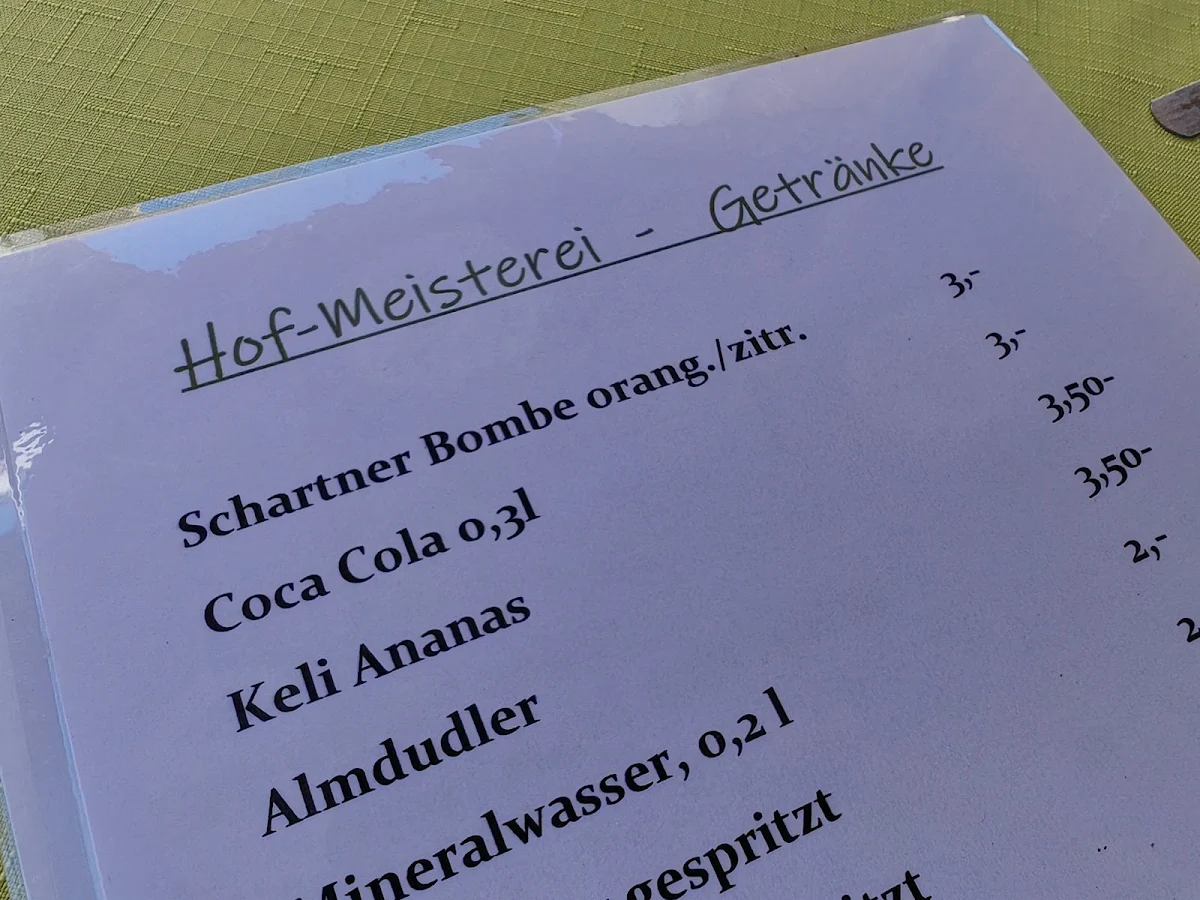 Hof-Meisterei - Getränke
Schartner Bombe orang./zitr. 3,-
Coca Cola 0,3l 3,-
Keli Ananas 3,50-
Almdudler 3,50-
Mineralwasser, 0,2 l 2,-
gespritzt